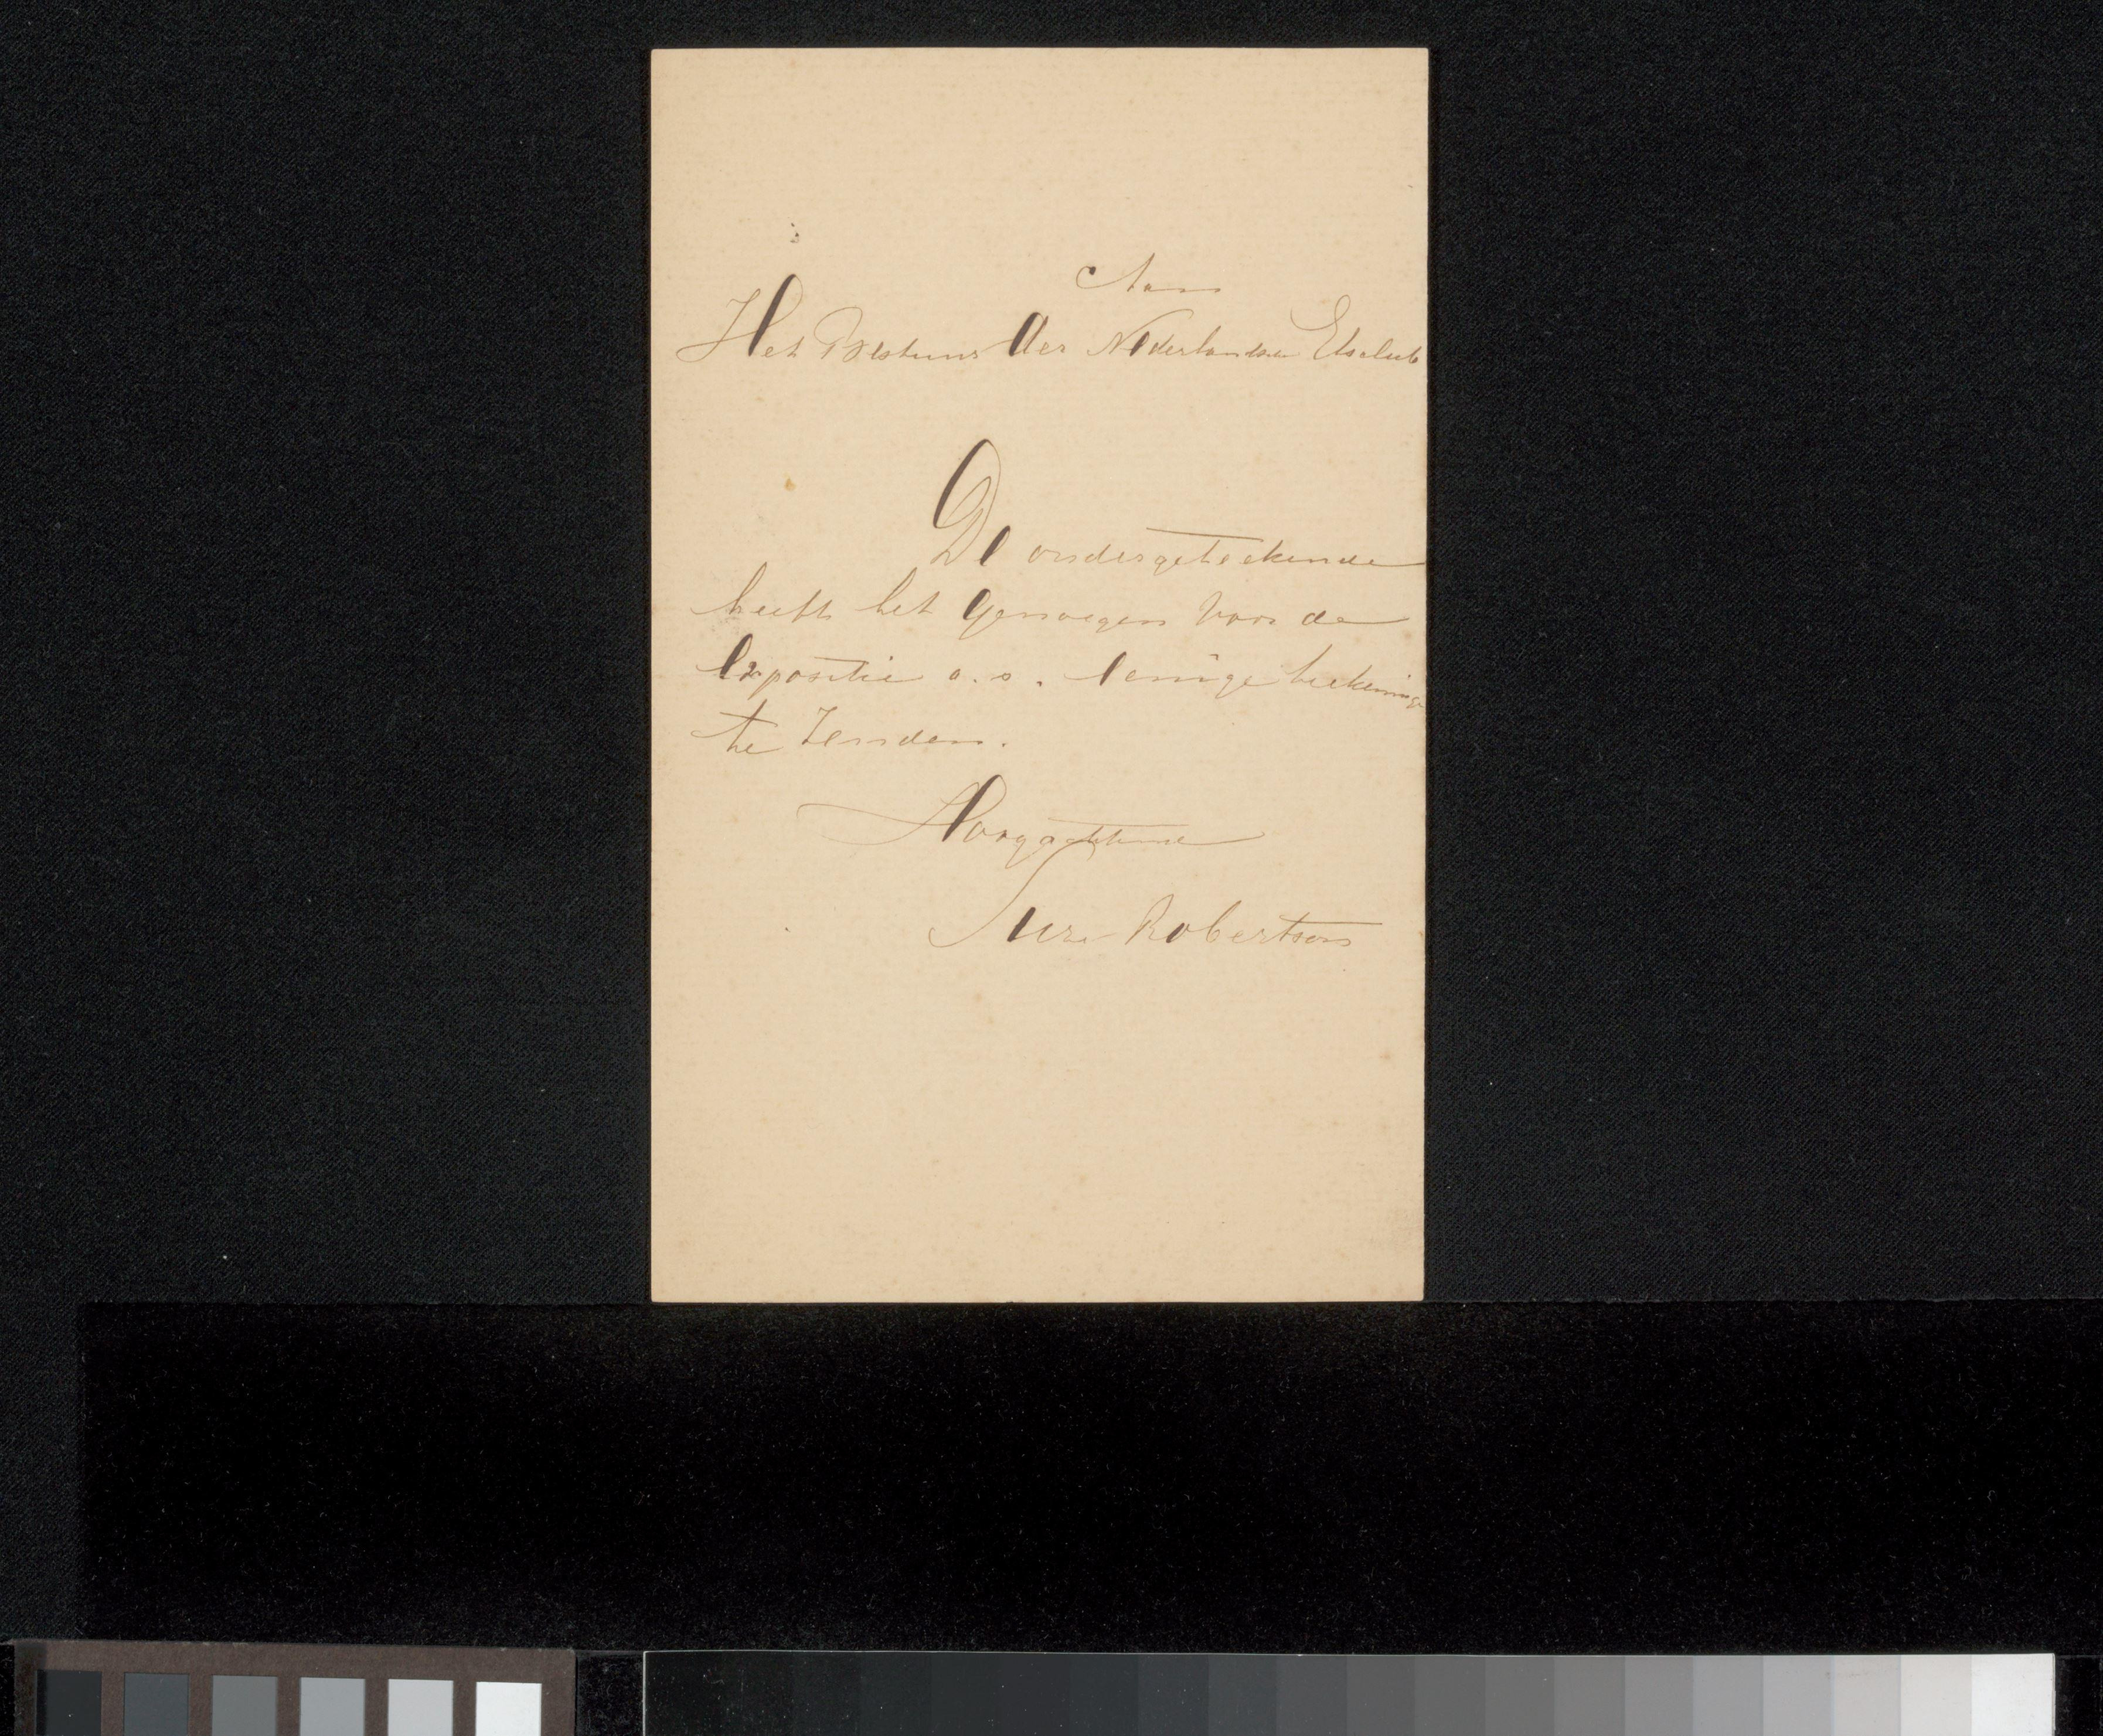 Aan
Het Bestuur der Nederlandsche Etsclub
De ondergeteekende
heeft het genoegen voor de
Expositie a.s. eenige teekeningen
te zenden.
Hoogachtend
Suze Robertson